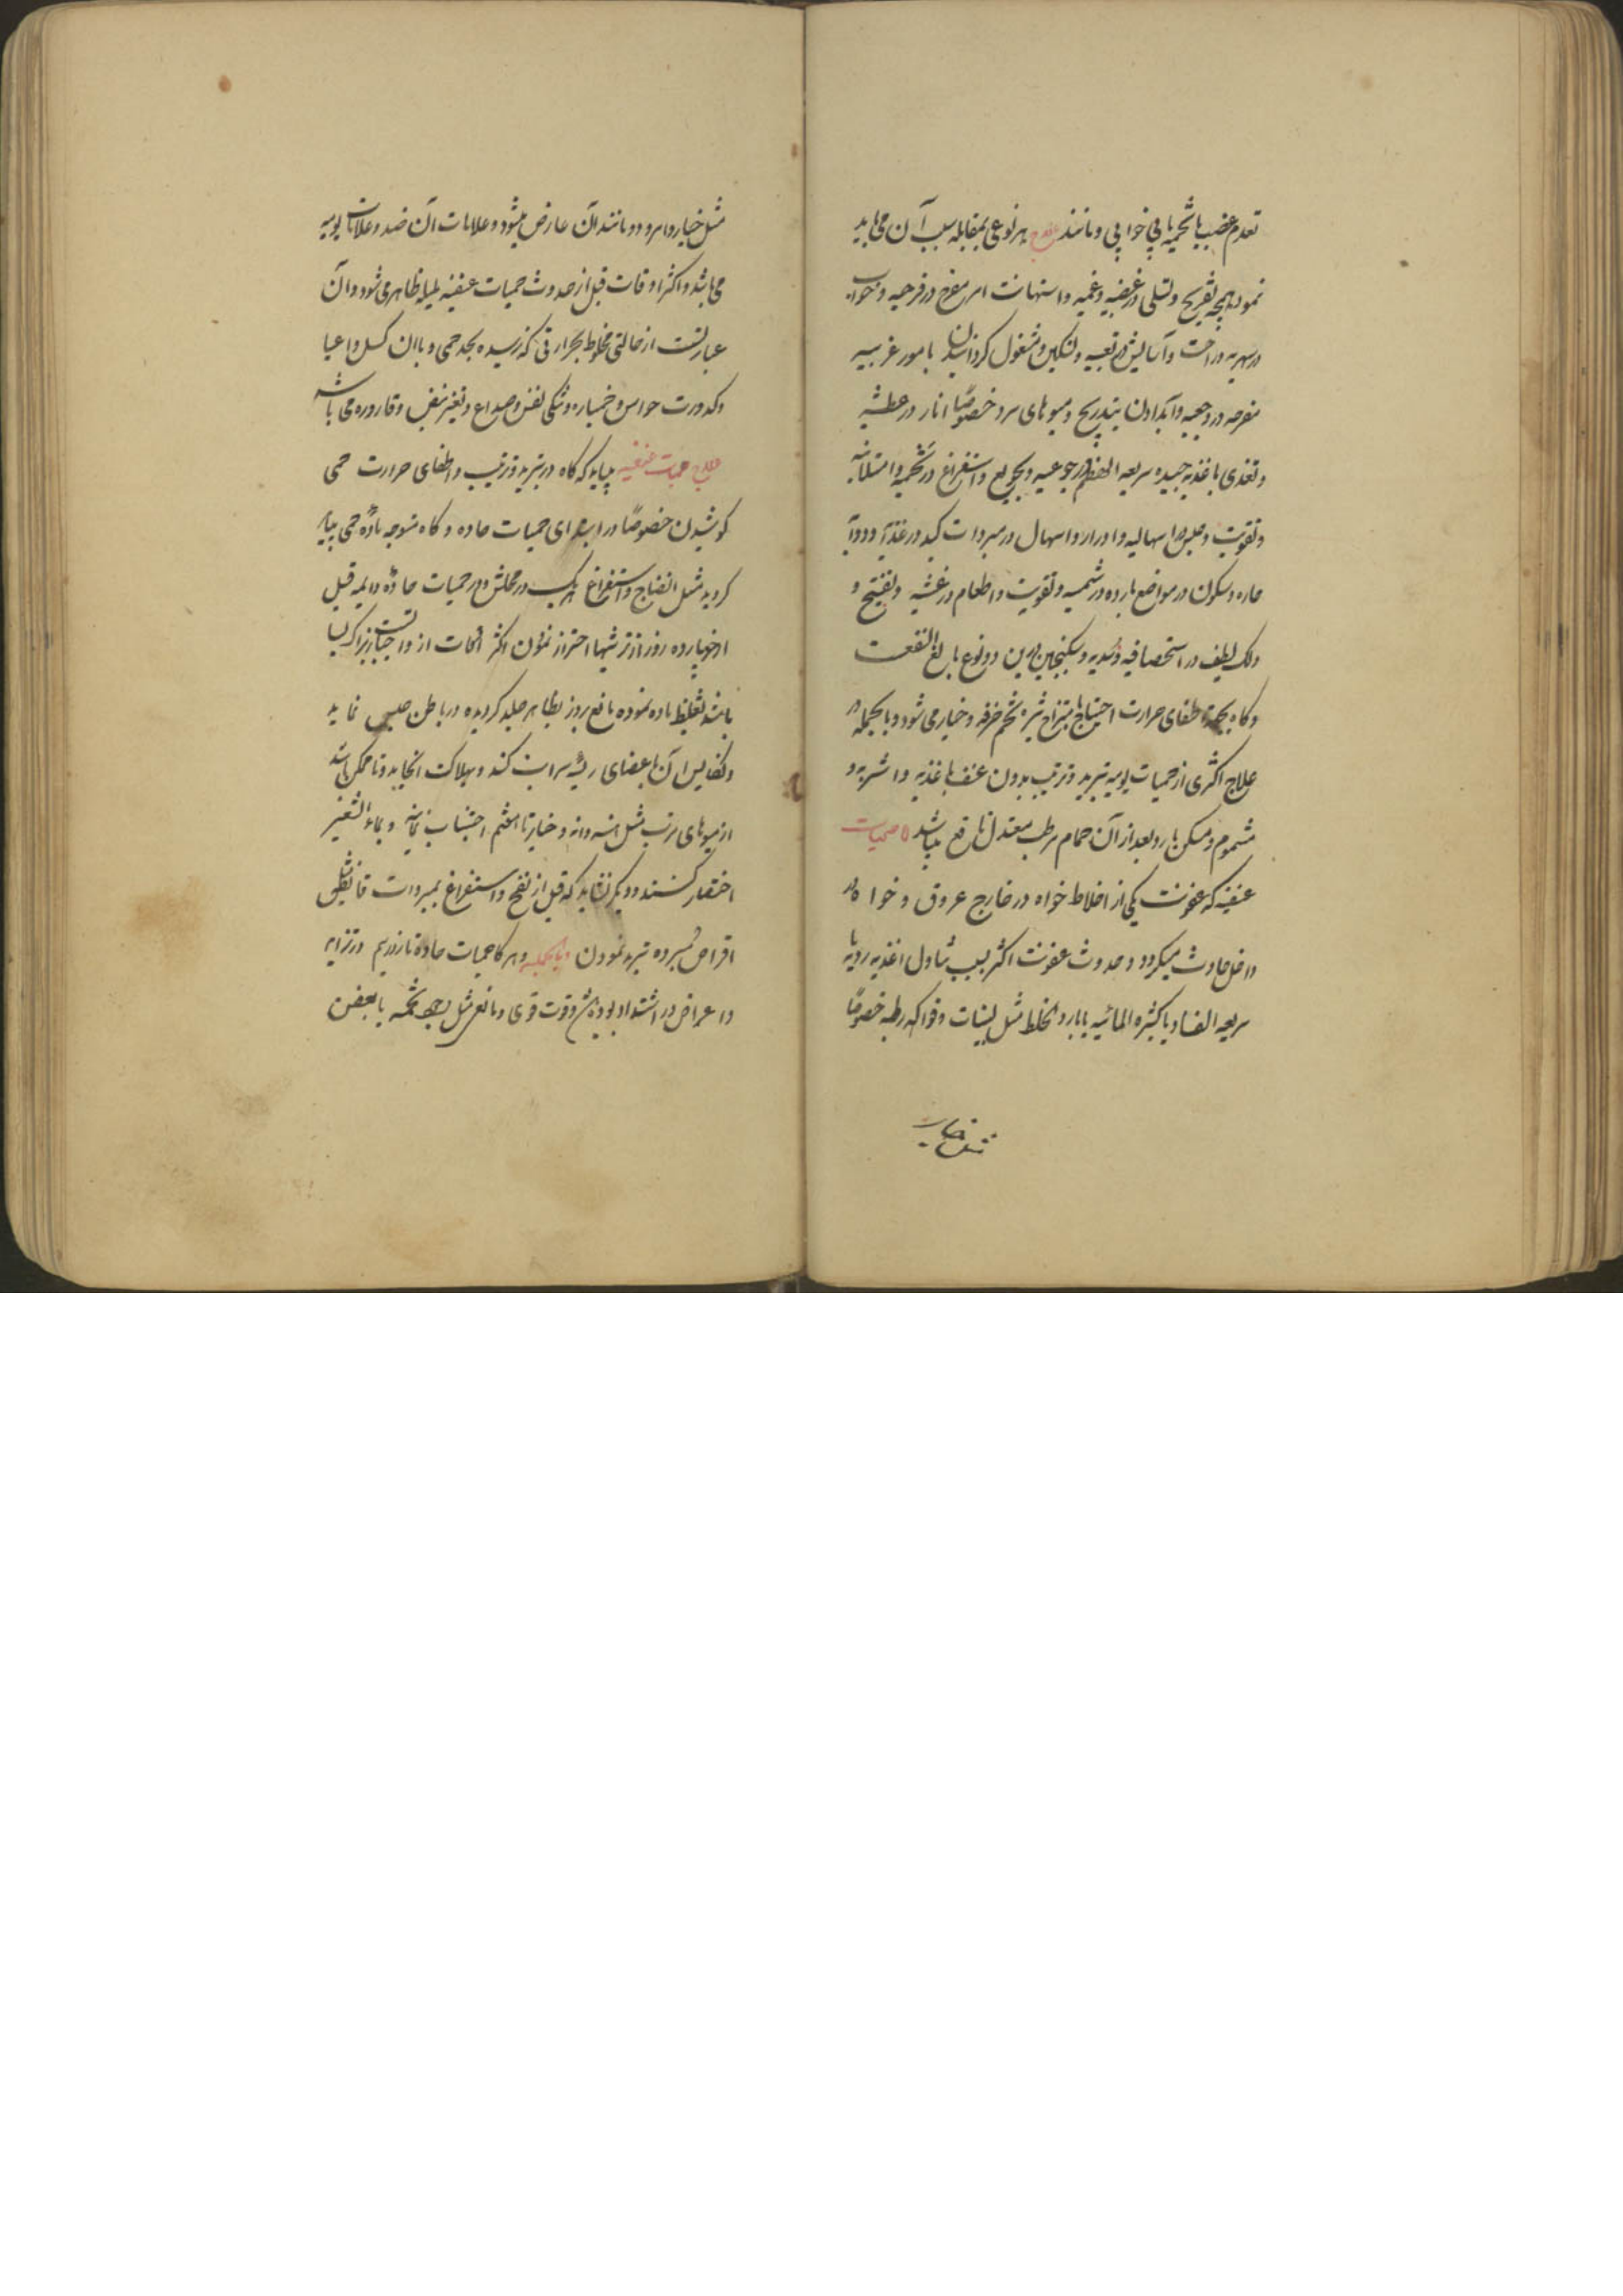 تقدم غضب یا تخمه یا بی خوابی و مانند علاج هر نوعی بمقابله سبب آن می باید
نمود بتفریح و تسلی در غضبیه و غمیه و استهانت امر مفرح در فرحیه و خواب
در سهریه و راحت و آسایش در تعبیه و تسکین و مشغول گردانیدن بامور غریبه
مفرحه در وجعیه و آب دادن بتدریج و میوهای سرد خصوصًا انار در عطشیه
و تغذی باغذیه جیده سریعه الهضم در جوعیه و تجویع و استفراغ در تخمیه و امتلائیه
و تقویت و حبس در اسهالیه و ادرار و اسهال در مبردات کبد در غذائیه و دوائیه
حاره و سکون در مواضع بارده در شمسیه و تقویت و اطعام در غشیه و تفتیح و
دلک لطیف در استحصافیه و سدیه و سکنجبین درین دو نوع بالغ النفعست
و گاه بجهة اطفای حرارت احتیاج بامتزاج شیره تخم خرفه و خیار می شود و بالجمله در
علاج اکثری از حمیات یومیه تبرید و ترتیب بدون عنف باغذیه و اشربه و
مشموم و مسکن بارد و بعد از آن حمام مرطب معتدل نافع میباشد حمیات
عفنیه که عفونت یکی از اخلاط خواه در خارج عروق و خواه در
داخل حادث میگردد و حدوث عفونت اکثر بسبب تناول اغذیه ردیه یا
سریعه الفساد یا کثیره المائیه یا بارد الخلط مثل لبنیات و فواکه رطبه خصوصًا
مثل خیار
مثل خیار و امرود و مانند آن عارض میشود و علامات آن ضد و علامات یومیه
می باشد و اکثر اوقات قبل از حدوث حمیات عفنیه ملیله ظاهر می شود و آن
عبارتست از حالتی مخلوط بحرارتی که نرسیده بحد حمی و با آن کسل و اعیا
و کدورت حواس و خمیازه و تنگی نفس و صداع و تغیر نبض و قاروره می باشد
علاج حمیات عفنیه بباید که گاه در تبرید و ترتیب و اطفای حرارت حمی
کوشیدن خصوصًا در ابتدای حمیات حاده و گاه متوجه مادّه حمی بباید
گردید مثل انضاج و استفراغ هر یک در محلش و در حمیات حادّه دایمه قبل
از خوبا رده روز از ترشیها احتراز نمودن اکثر اوقات از واجباتست زیرا که بسا
باشد تغلیظ ماده نموده مانع بروز بظاهر جلد گردیده در باطن حبس نماید
و آن باعضای رئیسه سرایت کند و بهلاکت انجامد و تا ممکن باشد
از میوهای مرتب مثل هندوانه و خیار تا هفتم اجتناب نمایند و بماء الشعیر
اختصار کنند و دیگر نشاید که قبل از نضج و استفراغ بمبردات قابضه مثل
اقراص مبرده تبرید نمودن و بالجمله و هر گاه حمیات حاده تا روز نهم در تزاید
و اعراض در اشتداد بوده باشد و قوت قوی و مانعی مثل تخمه یا بعضی